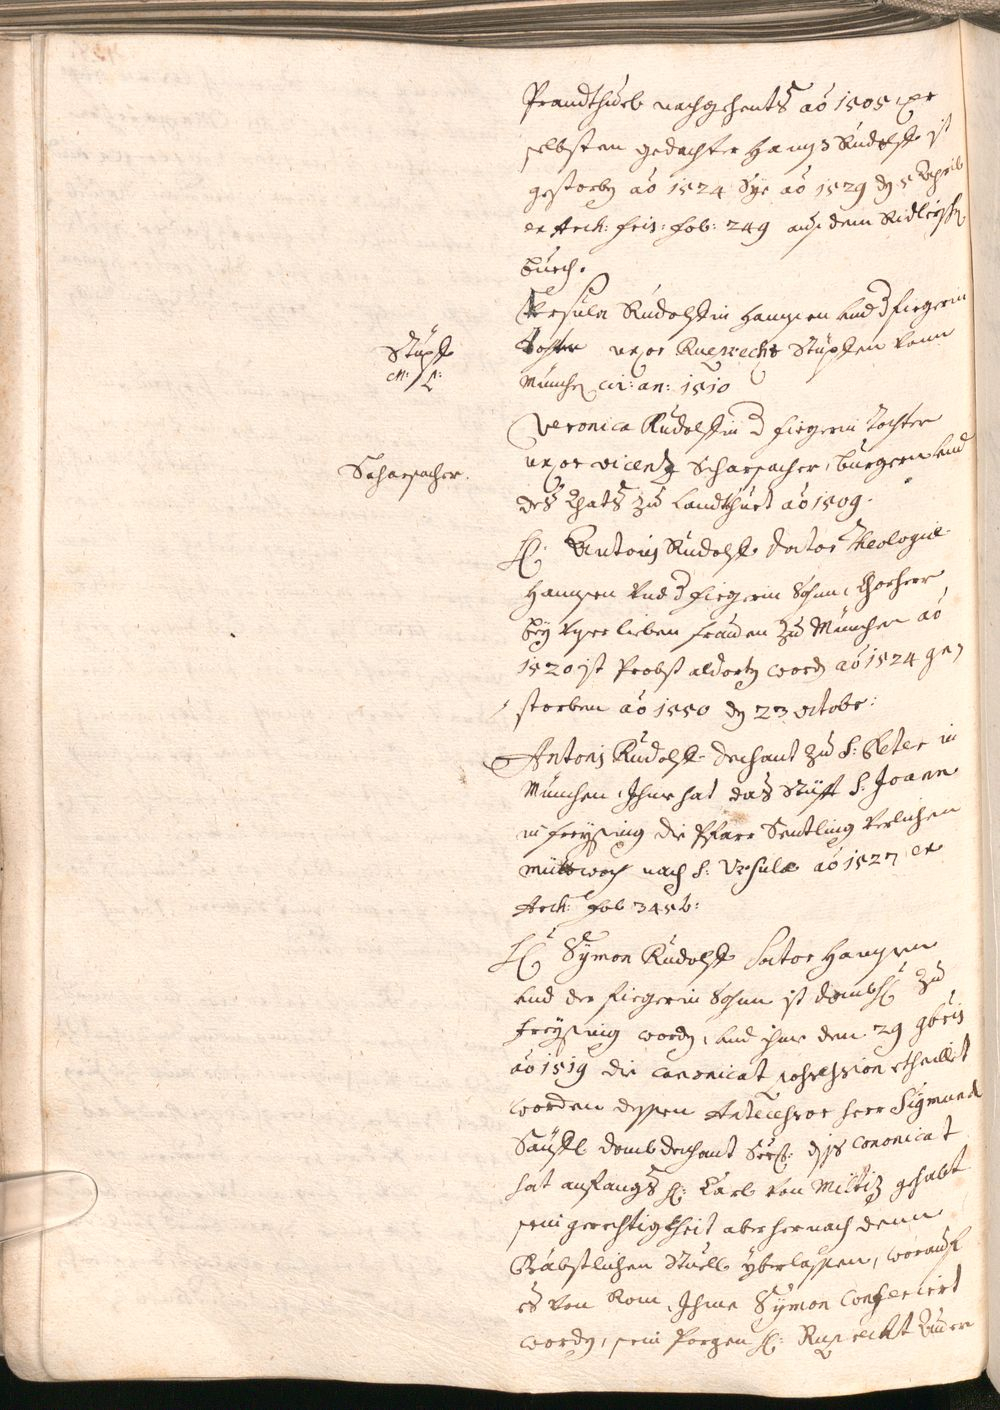 Prandthueb nachgehents aõ 1505 uxor
selbsten gedachter Hanns Rudolff ist
gestorbn aõ 1524 Sye aõ 1529 dn 5 Aprill
ex Arch: fris: fol: 249 auß dem Ridlerischn
buech.
Ursula Rudolffin Hannsen vnd d fiegerin
Tochter uxor Rueprecht Stüpffen vonn
Münchn cir: an: 1510
Stüpff
M: L:
Veronica Rudolffin d fiegerin Tochter
uxor Vicentz Scharsacher, burgern vnd
deß Rhats zu Landthuet aõ 1509.
Scharsacher.
H: Antonij Rudolff Doctor Theologiæ
Hannsen vnd d fiegerin Sohn, Chorherr
bey vnser lieben frauen zu München aõ
1520 ist Probst aldortn wordn aõ 1524 ge,
storben aõ 1550 dn 23 octobr:
Antonj Rudolff Dechant zu S: Peter in
München, Ihme hat das Stüfft S. Joann
in freysing die Pfarr Sentling verlichen
mittwoch nach S: Ursula aõ 1527 ex
Arch: fol 345 b:
H: Symon Rudolff Hannsen
vnd der fiegerin Sohn ist dombH: zu
freysing wordn, vnd ihme den 29 9bris
aõ 1519 die canonicat possession ertheillt
worden dessen Antecessor herr Sigmund
Sänfftl dombdechant diß Canonicat
hat anfangs H: Carl von Miltiz gehabt
sein gerechtigkheit aber hernach dem
Päbstlichen Stuell yberlassen, worauf
es von Rom, Ihme Symon Conferiert
wordn, sein H: Ruprecht